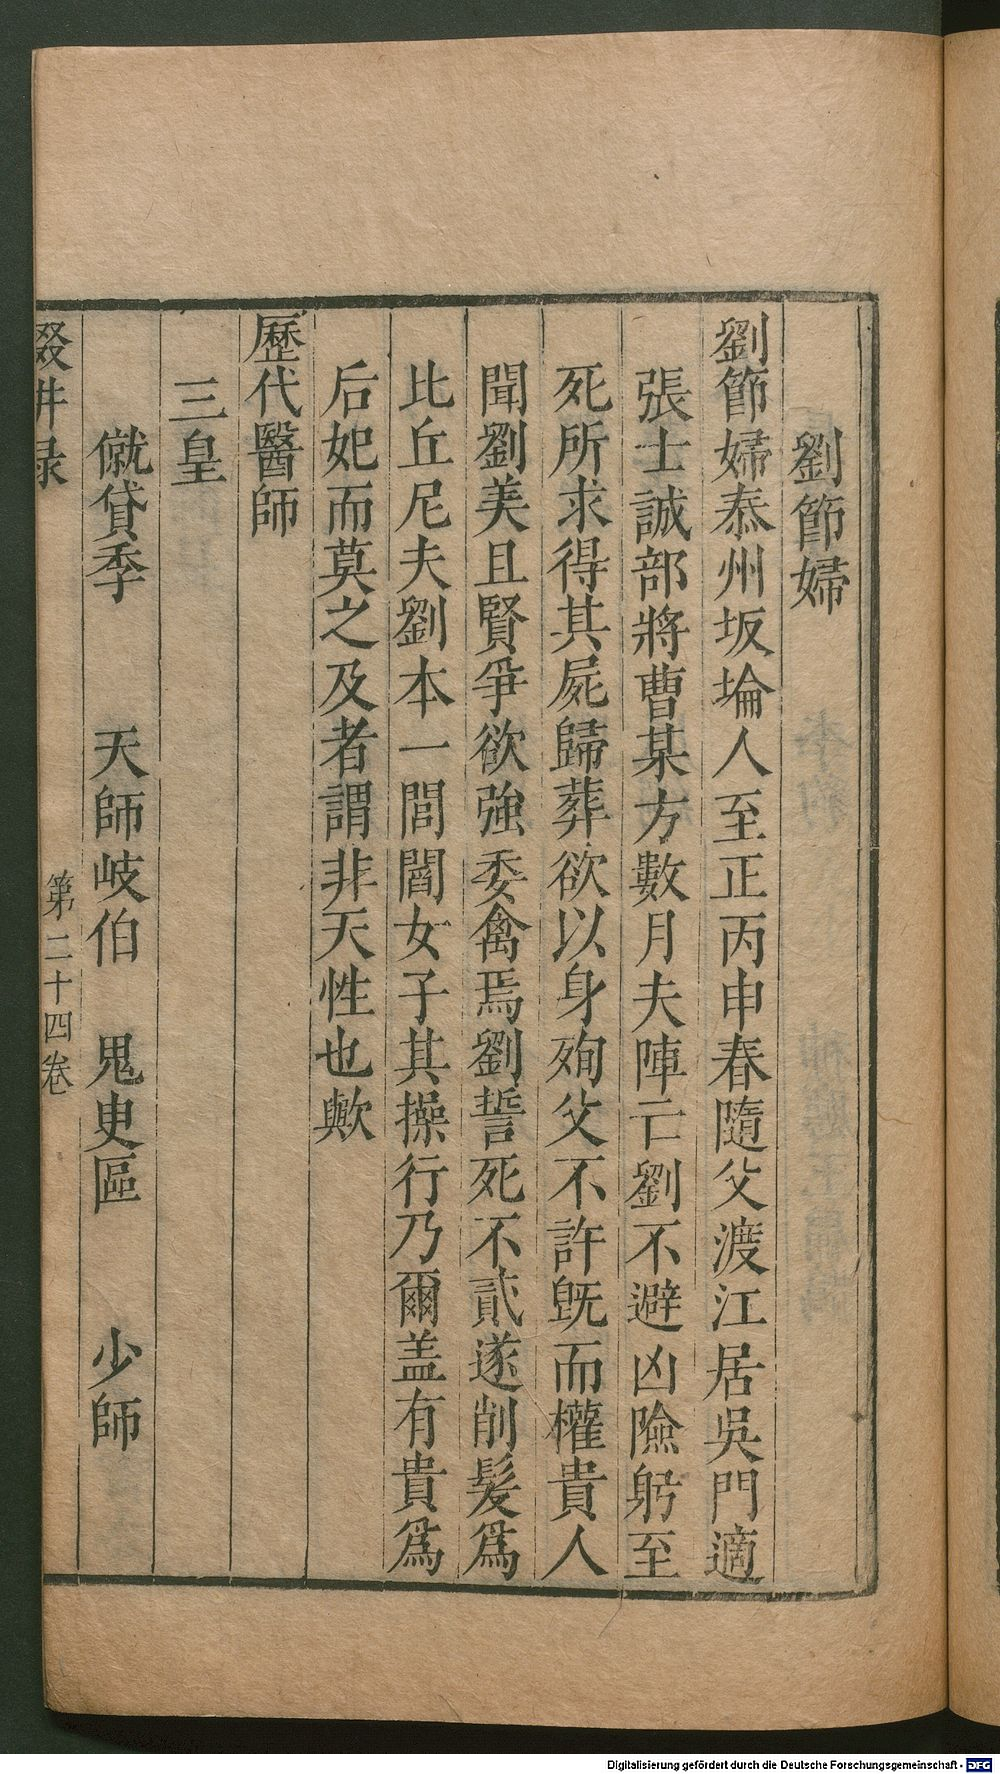 劉節婦
劉節婦泰州坂埨人至正丙申春隨父渡江居吳門適
張士誠部將曹某方數月夫陣亡劉不避凶險躬至
死所求得其屍歸葬欲以身殉父不許旣而權貴人
聞劉美且賢爭欲強委禽焉劉誓死不貳遂削髮爲
比丘尼夫劉本一閭閻女子其操行乃爾盖有貴爲
后妃而莫之及者謂非天性也歟
歷代醫師
三皇
僦貸季 天師岐伯 鬼臾區 少師
輟畊录 第二十四卷
Digitalisierung gefördert durch die Deutsche Forschungsgemeinschaft - DFG